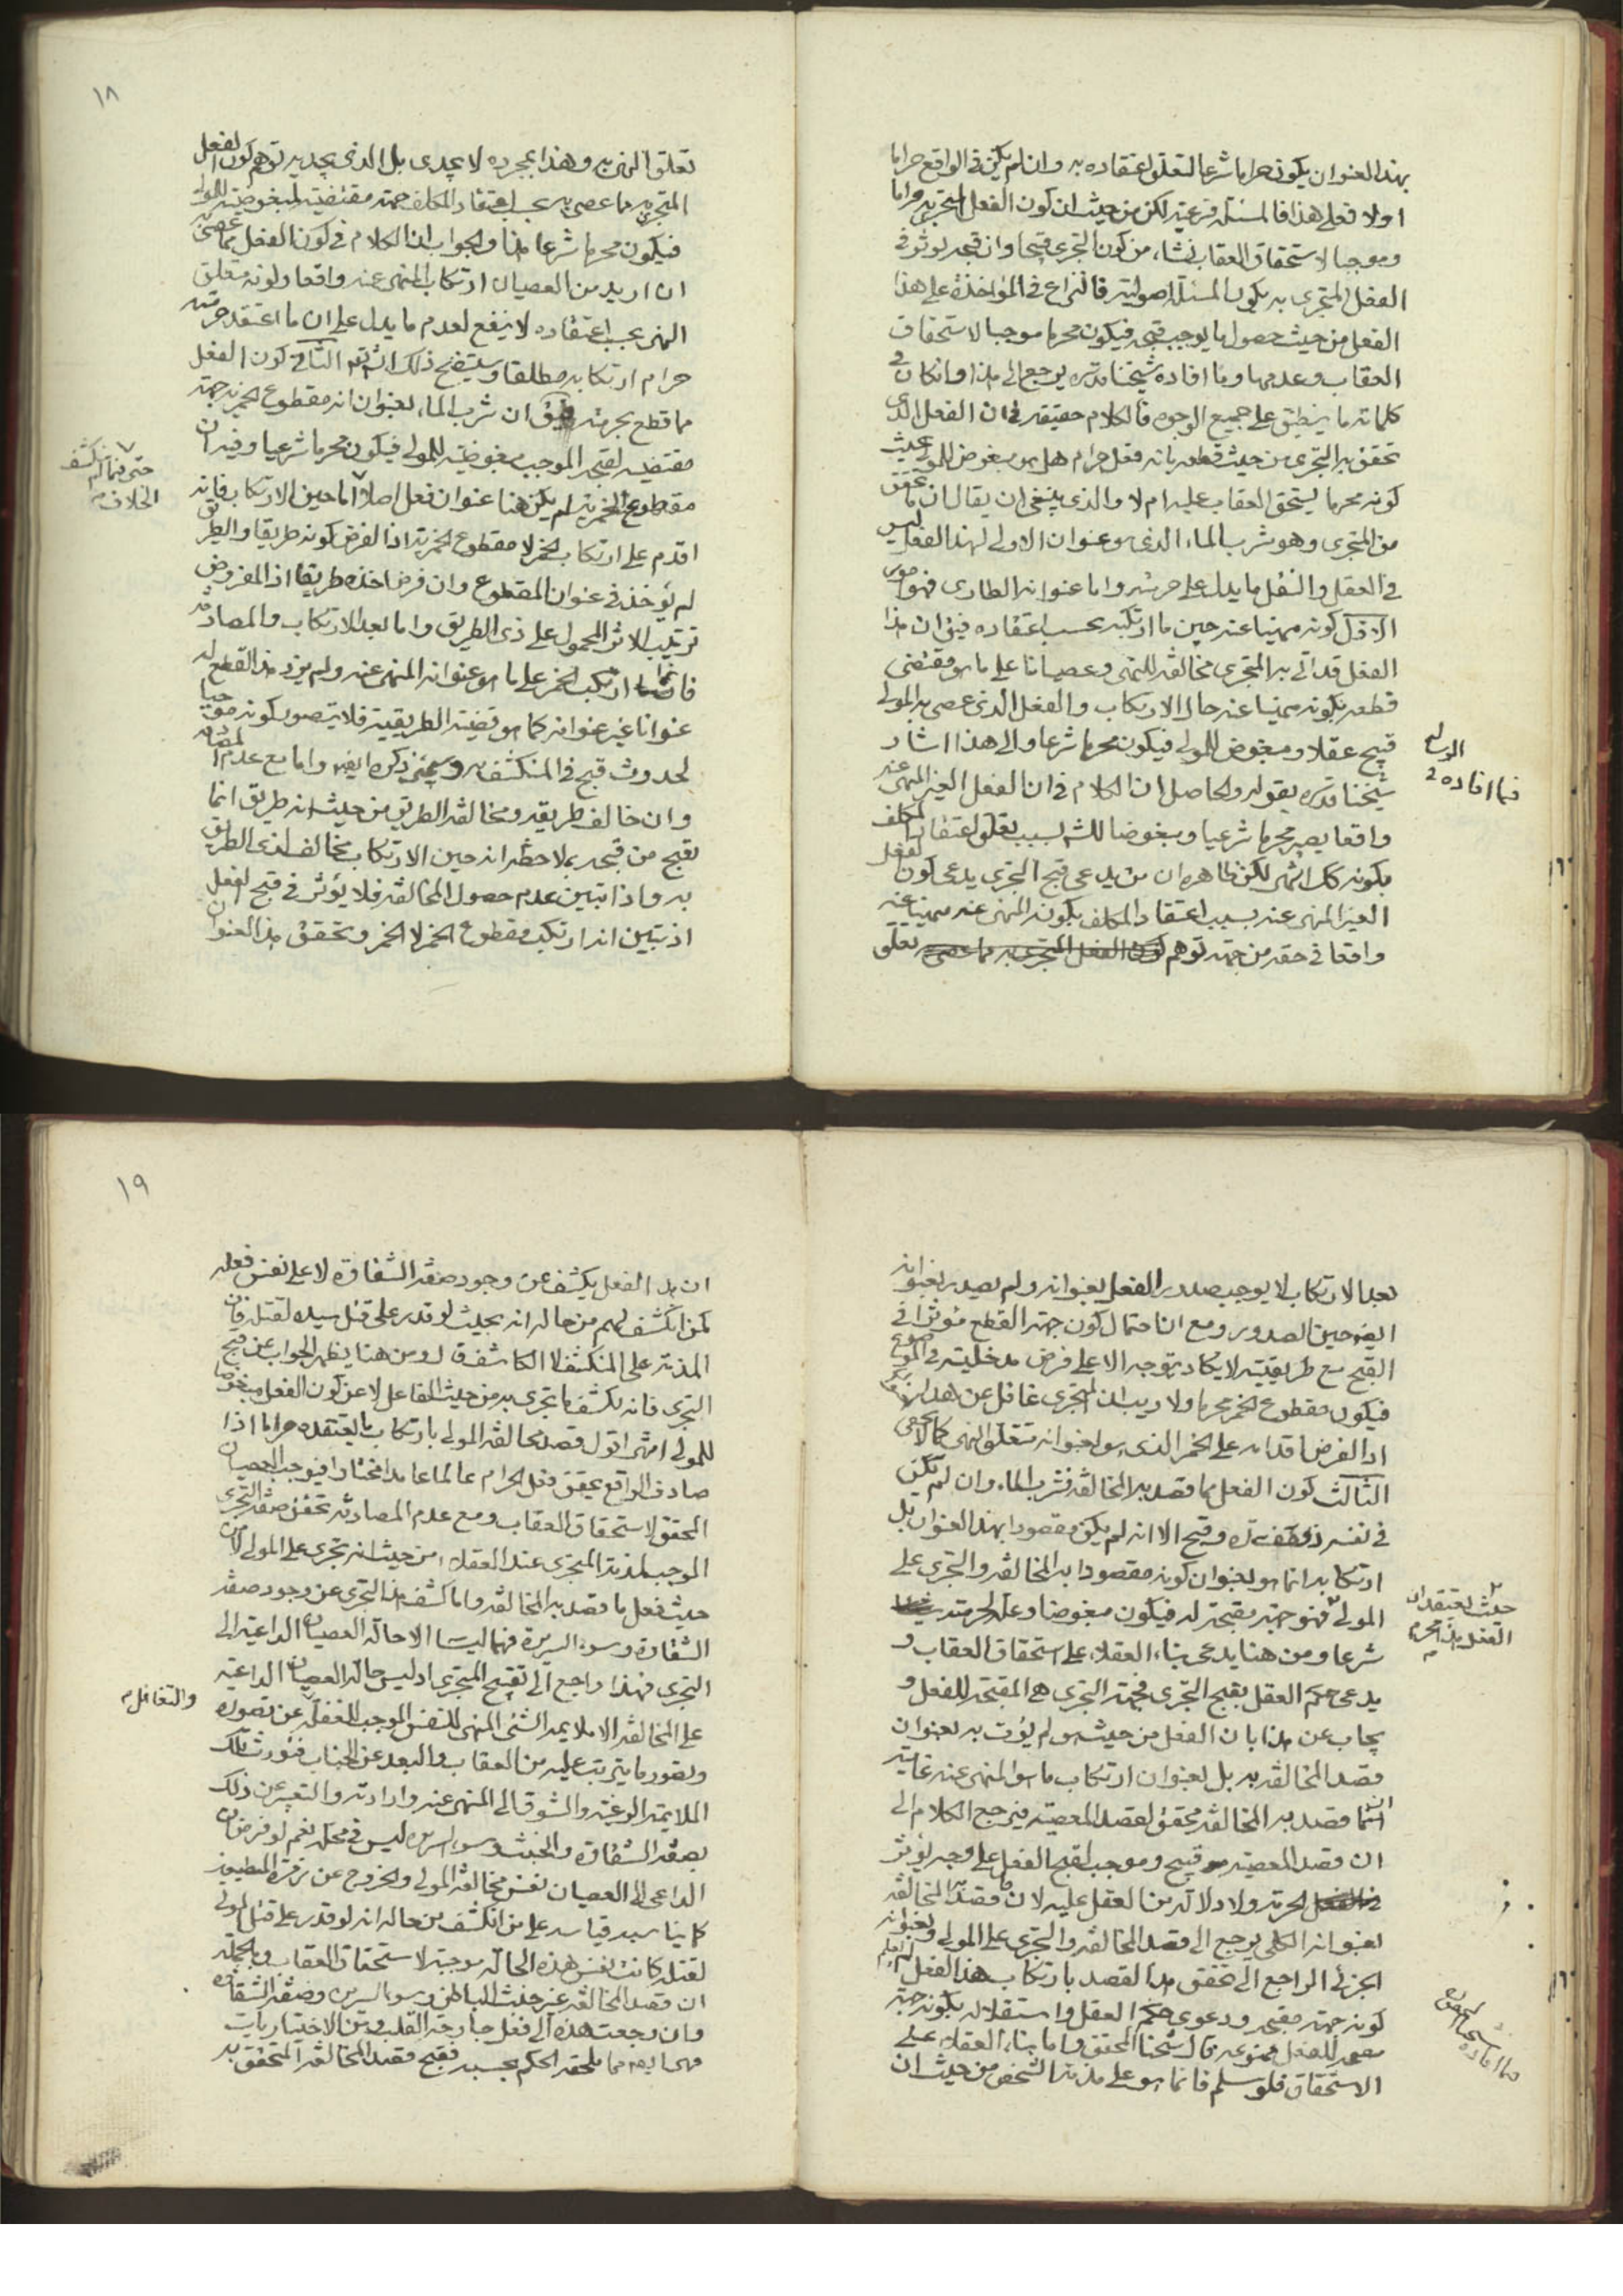 بهذا العنوان يكون حراما شرعا لتعلق اعتقاده به وان لم يكن في الواقع حراما
اولا فعلى هذا فالمسئلة فرعية لكن من حيث ان كون الفعل المتجرى به حراما
وموجبا لاستحقاق العقاب نشاء من كون التجرى قبيحا وان قبحه يؤثر في
الفعل المتجرى به يكون المسئلة اصولية فالنزاع في المؤاخذة على هذا
الفعل من حيث حصول ما يوجب قبحه فيكون محرما موجبا لاستحقاق
العقاب وعدمها وما افاده شيخنا قدس سره يرجع الى هذا وان كان في
كلماته ما ينطبق على جميع الوجوه فالكلام حقيقة في ان الفعل الذى
تحقق به التجرى من حيث قطعه بانه فعل حرام هل هو مبغوض للمولى بحيث
كونه محرما يستحق العقاب عليه ام لا والذى ينبغى ان يقال ان ما تحقق
من المتجرى وهو شرب الماء الذى هو عنوانه الاولى لهذا الفعل ليس
في العقل والنقل ما يدل على حرمته واما عنوانه الطارى فهو امور
الاول كونه منهيا عنه حين ما ارتكبه بحسب اعتقاده فيق ان هذا
الفعل قد اتى به المتجرى مخالفة للنهى وعصيانا على ما هو مقتضى
قطعه بكونه منهيا عنه حال الارتكاب والفعل الذى عصى به المولى
قبيح عقلا ومبغوض للمولى فيكون محرما شرعا والى هذا اشار
فيما افاده في الرسالة
شيخنا قدس سره بقوله والحاصل ان الكلام في ان الفعل الغير المنهى عنه
واقعا يصير محرما شرعيا ومبغوضا لله بسبب تعلق اعتقاد المكلف
بكونه كك انتهى لكن ظاهره ان من يدعى قبح التجرى يدعى كون الفعل
الغير المنهى عنه بسبب اعتقاد المكلف بكونه المنهى عنه منهيا عنه
واقعا في حقه من جهة توهم كون الفعل المتجرى به مما عصى به تعلق
١٨
تعلق النهى به وهذا بمجرده لا يجدى بل الذى يجديه توهم كون الفعل
المتجرى به مما عصى به بحسب اعتقاد المكلف جهة مقتضية لمبغوضيته للمولى
فيكون محرما شرعا هذا والجواب ان الكلام في كون الفعل مما عصى
ان اريد من العصيان ارتكاب المنهى عنه واقعا وكونه متعلق
النهى بحسب اعتقاده لا ينفع لعدم ما يدل على ان ما اعتقد حرمته
حرام ارتكابه مطلقا وسيتضح ذلك انش تع الثانى كون الفعل
مما قطع بحرمته فيق ان شرب الماء بعنوان انه مقطوع الخمرية جهة
مقتضية لقبحه الموجب مبغوضيته للمولى فيكون محرما شرعيا وفيه ان
مقطوع الخمرية لم يكن هنا عنوان فعل اصلا اما حين الارتكاب فانه
حتى فيما لم ينكشف
الخلاف م
اقدم على ارتكاب الخمر لا مقطوع الخمرية اذ الفرض كونه طريقا والطريق
لم يؤخذ في عنوان المقطوع وان فرض اخذه طريقا اذ المفروض
ترتيب الاثر المحمول على ذى الطريق واما بعد الارتكاب والمصادفة
فانما ارتكب الخمر على ما هو عنوانه المنهى عنه ولم يزد هذا القطع له
عنوانا غير عنوانه كما هو قضية الطريقية فلا يتصور كونه موجبا
لحدوث قبح في المنكشف به وسيجئ ذكره ايضا واما مع عدم المصادفة
وان خالف طريقه ومخالفة الطريق من حيث انه طريق انما
يقبح من قبحه بملاحظة انه حين الارتكاب مخالف لذى الطريق
به واذا تبين عدم حصول المخالفة فلا يؤثر في قبح الفعل
اذ تبين انه ارتكب مقطوع الخمر لا الخمر وتحقق هذا العنوان
بعد الارتكاب لا يوجب صدور الفعل بعنوانه ولم يصدر بعنوانه
ايضا حين الصدور ومع ان احتمال كون جهة القطع مؤثرا في
القبح مع طريقيته لا يكاد يتوجه الا على فرض مدخليته في الموضوع
فيكون مقطوع الخمر محرما ولا ريب ان المتجرى غافل عن هذا
اذ الفرض اقدامه على الخمر الذى هو بعنوانه متعلق النهى كما لا يخفى
الثالث كون الفعل مما قصد به المخالفة فشرب الماء وان لم يكن
في نفسه وقبيح الا انه لم يكن مقصودا بهذا العنوان بل
ارتكابه انما هو بعنوان كونه مقصودا به المخالفة والتجرى على
المولى فهو جهة مقبحة له فيكون مبغوضا وعلة لحرمته
حيث يعتقد ان
الفعل هذا محرم
شرعا ومن هنا يدعى بناء العقلاء على استحقاق العقاب و
يدعى حكم العقل بقبح التجرى فجهة التجرى هى المقبحة للفعل و
يجاب عن هذا بان الفعل من حيث هو لم يؤت به بعنوان
قصد المخالفة به بل بعنوان ارتكاب ما هو المنهى عنه غايته
انما قصد به المخالفة محقق لقصد المعصية فيرجع الكلام الى
ان قصد المعصية قبيح وموجب لقبح الفعل على وجه يؤثر
لحرمته ولا دلالة من العقل عليه لان قصد المخالفة
بعنوانه الكلى يرجع الى قصد المخالفة والتجرى على المولى وبعنوانه
الجزئى الراجع الى تحقق هذا القصد بارتكاب هذا الفعل لم يعلم
كونه جهة مقبحة ودعوى حكم العقل واستقلاله بكونه جهة
للفعل ممنوعة قال شيخنا المحقق واما بناء العقلاء على
الاستحقاق فلو سلم فانما هو على مذمة الشخص من حيث ان
١٩
ان هذا الفعل يكشف عن وجود صفة الشقاوة لا على نفس فعله
كمن انكشف لهم من حاله انه بحيث لو قدر على قتل سيده لقتله فان
المذمة على المنكشف لا الكاشف ق ل ومن هنا يظهر الجواب عن قبح
التجرى فانه لكشف ما تجرى به من خبث الفاعل لا عن كون الفعل مبغوضا
للمولى انتهى اقول قصد مخالفة المولى بارتكاب ما يعتقده حراما اذا
صادف الواقع يحقق فعل الحرام عالما عامدا مختارا فيوجب العصيان
المحقق لاستحقاق العقاب ومع عدم المصادفة تحقق صفة التجرى
الموجب لمذمة المتجرى عند العقلاء من حيث انه تجرى على المولى لا من
حيث فعل ما قصد به المخالفة واما كشف هذا التجرى عن وجود صفة
الشقاوة وسوء السريرة فهما ليستا الا حالة العصيان الداعية الى
التجرى فهذا راجع الى تقبيح المتجرى اذ ليس حالة العصيان الداعية
على المخالفة الا ملايمة الشئ المنهى للنفس الموجب للغفلة عن تصوره
والتغافل م
وتصور ما يترتب عليه من العقاب والبعد عن الجناب فتورث تلك
الملايمة الرغبة والشوق الى المنهى عنه وارادته والتعبير عن ذلك
بصفة الشقاوة والخبث وسوء السريرة ليس في محله نعم لو فرض ان
الداعى الى العصيان نفس مخالفة المولى والخروج عن زمرة المطيعين
كما يناسبه قياسه على من انكشف من حاله انه لو قدر على قتل المولى
لقتله كانت نفس هذه الحالة موجبة لاستحقاق العقاب وبالجملة
ان قصد المخالفة غير خبث الباطن وسوء السريرة وصفة الشقاوة
وان رجعت هذه الى فعل جارحة القلب ومن الاختياريات
فهى ايضا مما يلحقه الحكم بحسبه فقبح قصد المخالفة المتحقق به